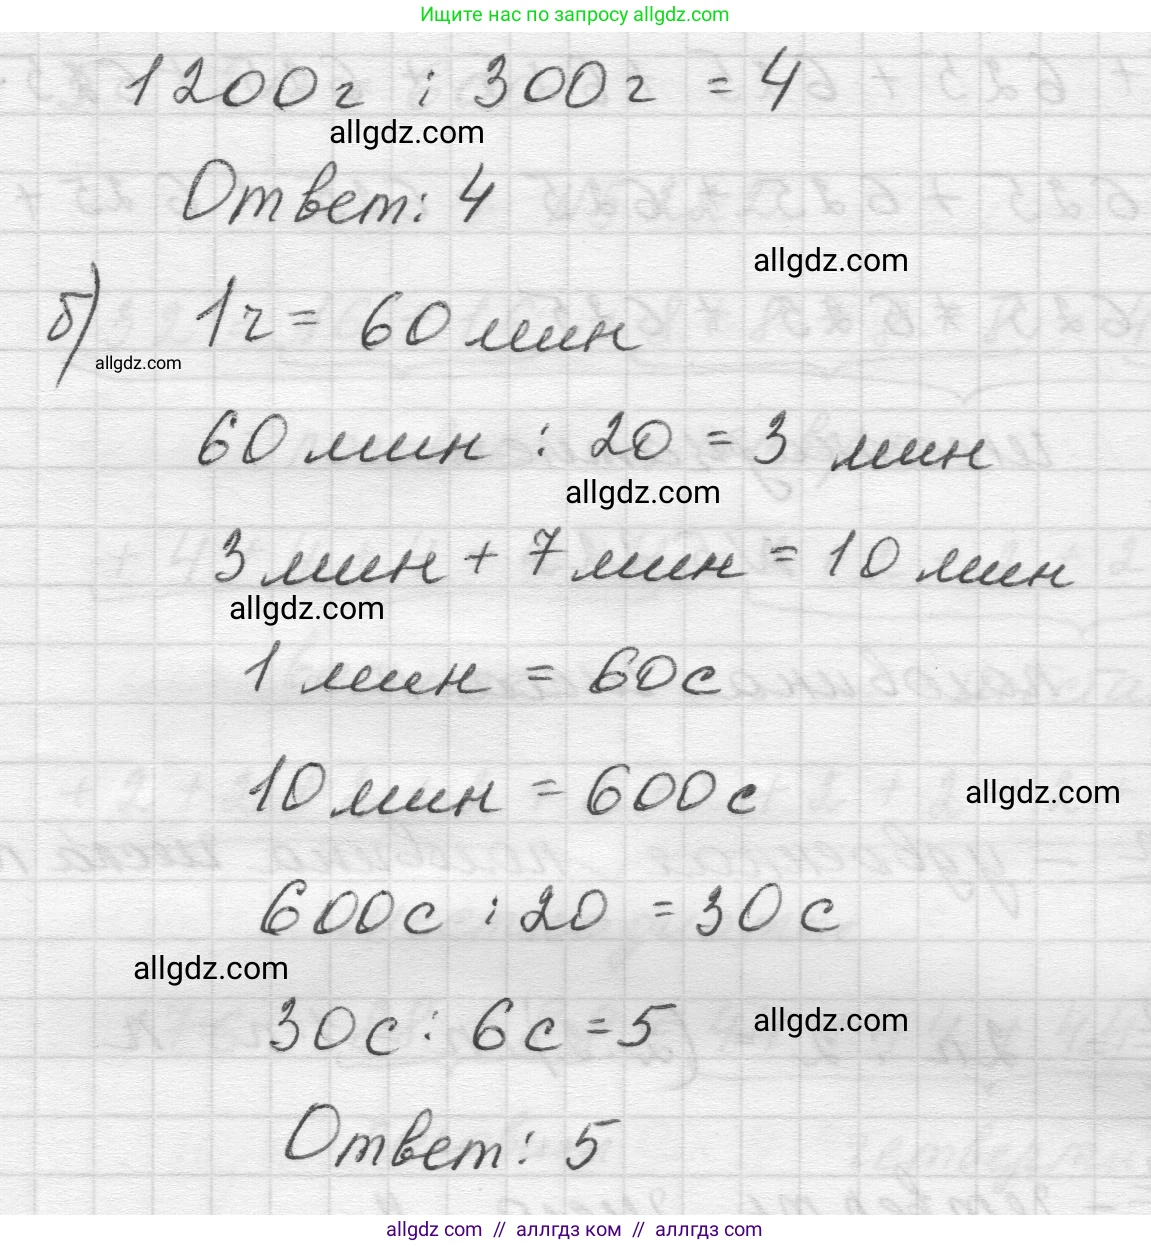 Ищите нас по запросу allgdz.com
1200г : 300г = 4
allgdz.com
Ответ: 4
allgdz.com
б) 1ч = 60 мин
allgdz.com
60 мин : 20 = 3 мин
allgdz.com
3 мин + 7 мин = 10 мин
allgdz.com
1 мин = 60с
10 мин = 600с
allgdz.com
600с : 20 = 30с
allgdz.com
30с : 6с = 5
allgdz.com
Ответ: 5
allgdz.com // аллгдз ком // аллгдз.com